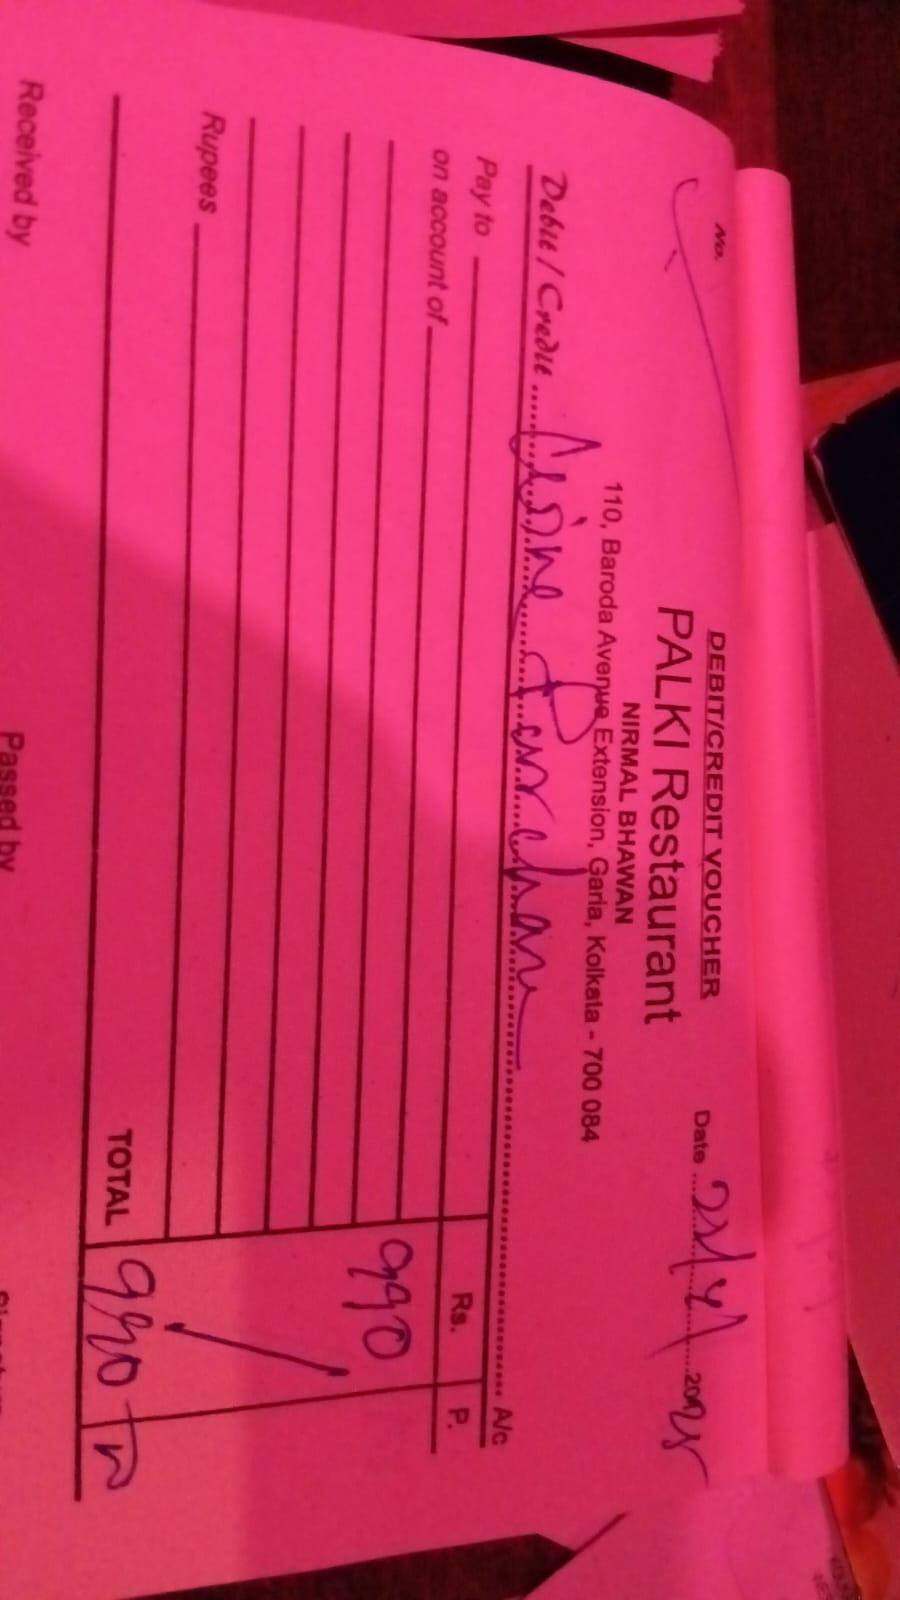 DEBIT/CREDIT VOUCHER
PALKI Restaurant
NIRMAL BHAWAN
110, Baroda Avenue Extension, Garia, Kolkata - 700 084
No.
Date
Debit / Credit A/c
Pay to Rs. P.
on account of
990
Rupees
TOTAL 990
Received by Passed by